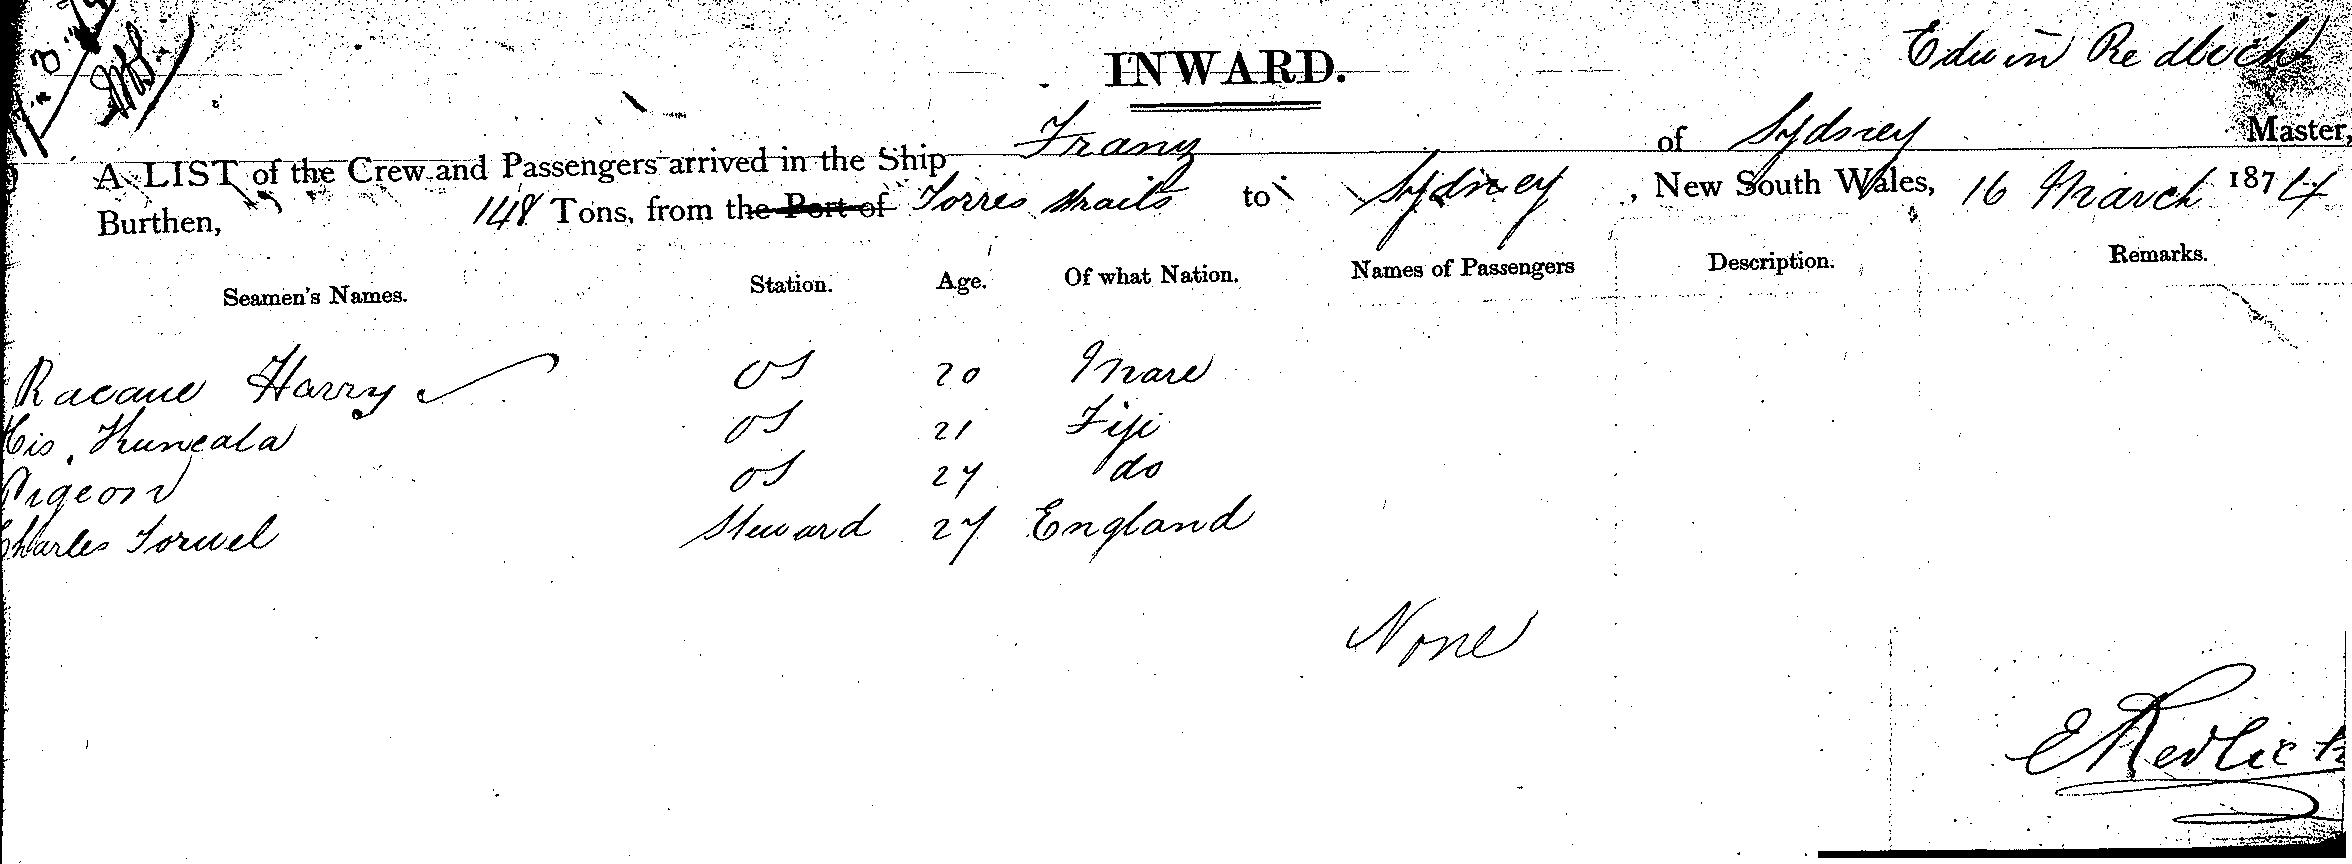 INWARD.
Edwin Redlich
A LIST of the Crew and Passengers arrived in the Ship Franz of Sydney Master,
Burthen, 148 Tons, from the Port of Torres Straits to Sydney, New South Wales, 16 March 1874
Seamen's Names. Station. Age. Of what Nation. Names of Passengers Description. Remarks.
Harry OS 20 Mare
OS 21 Fiji
Pigeon OS 27 do
Charles Steward 27 England
None
E Redlich